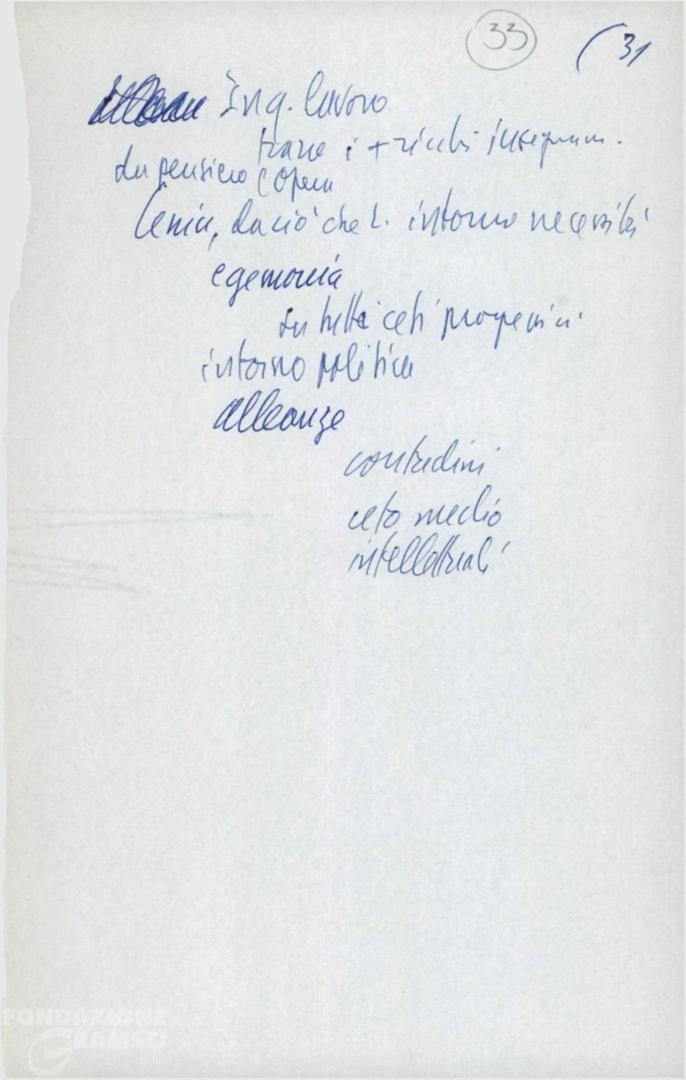 33
(31
Ing. lavoro
trarre i + ricchi insegnam.
da pensiero e opera
Lenin, da ciò che L. intorno necessità
egemonia
su tutti i ceti progressivi
intorno politica
alleanze
contadini
ceto medio
intellettuali
FONDAZIONE
GRAMSCI